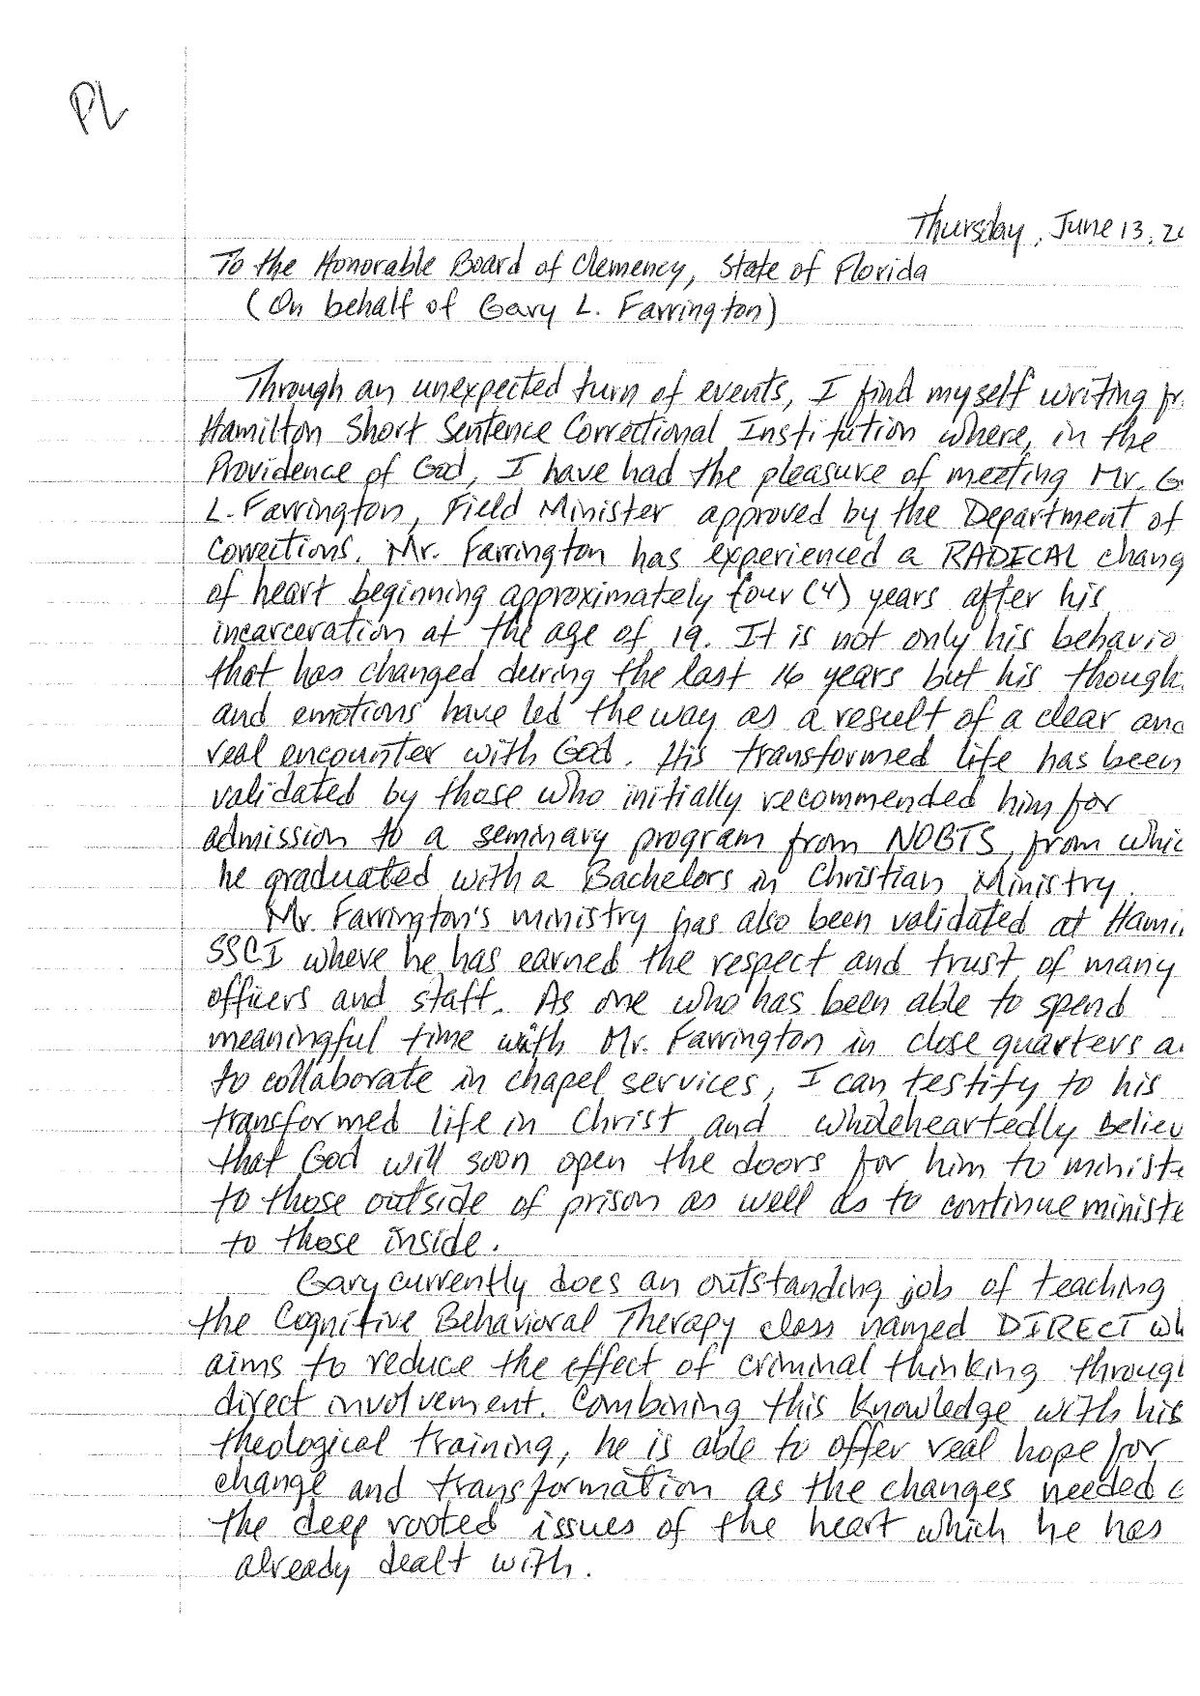 PL
Thursday, June 13, 20
To the Honorable Board of Clemency, State of Florida
(On behalf of Gary L. Farrington)
Through an unexpected turn of events, I find myself writing fr
Hamilton Short Sentence Correctional Institution where, in the
Providence of God, I have had the pleasure of meeting Mr. G
L. Farrington, Field Minister approved by the Department of
Corrections. Mr. Farrington has experienced a RADICAL chang
of heart beginning approximately four (4) years after his
incarceration at the age of 19. It is not only his behavio
that has changed during the last 16 years but his though
and emotions have led the way as a result of a clear and
real encounter with God. His transformed life has been
validated by those who initially recommended him for
admission to a seminary program from NOBTS, from whic
he graduated with a Bachelors in Christian Ministry.
Mr. Farrington's ministry has also been validated at Hami
SSCI where he has earned the respect and trust of many
officers and staff. As one who has been able to spend
meaningful time with Mr. Farrington in close quarters a
to collaborate in chapel services, I can testify to his
transformed life in Christ and wholeheartedly believ
that God will soon open the doors for him to ministe
to those outside of prison as well as to continue ministe
to those inside.
Gary currently does an outstanding job of teaching
the Cognitive Behavioral Therapy class named DIRECT wh
aims to reduce the effect of criminal thinking throug
direct involvement. Combining this knowledge with his
theological training, he is able to offer real hope for
change and transformation as the changes needed a
the deep rooted issues of the heart which he has
already dealt with.